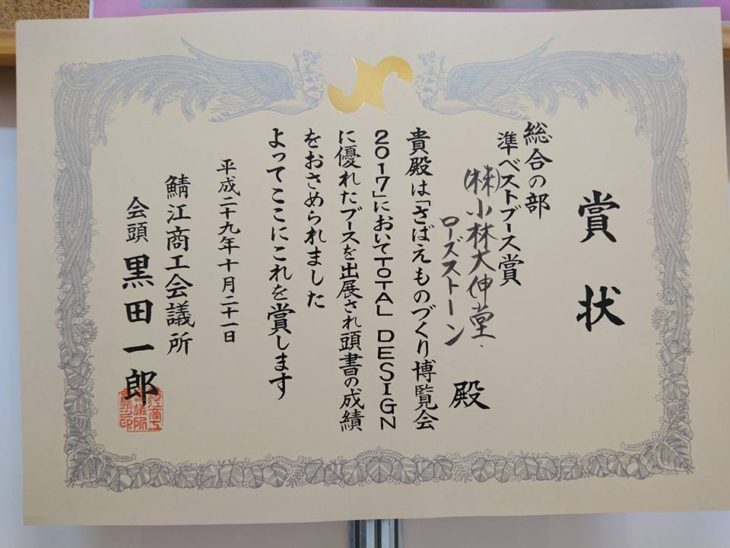 賞状
総合の部
準ベストブース賞
(株)小林大伸堂・
ローズストーン
殿
貴殿は「さばえものづくり博覧会
2017」においてTOTAL DESIGN
に優れたブースを出展され頭書の成績
をおさめられました
よってここにこれを賞します
平成二十九年十月二十一日
鯖江商工会議所
会頭 黒田一郎